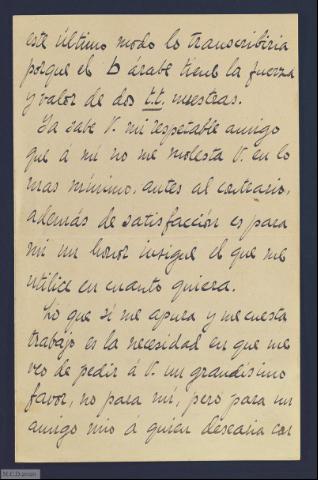 este último modo lo transcribiria
porque el b árabe tiene la fuerza
y valor de dos t.t. nuestras.
Ya sabe V. mi respetable amigo
que á mi no me molesta V. en lo
mas minimo, antes al contrario,
además de satisfacción es para
mi un honor insigne el que me
utilice en cuanto quiera.
Lo que si me apura y me cuesta
trabajo es la necesidad en que me
veo de pedir á V. un grandisimo
favor, no para mi, pero para un
amigo mio á quien desearia con
M.C.D 2022